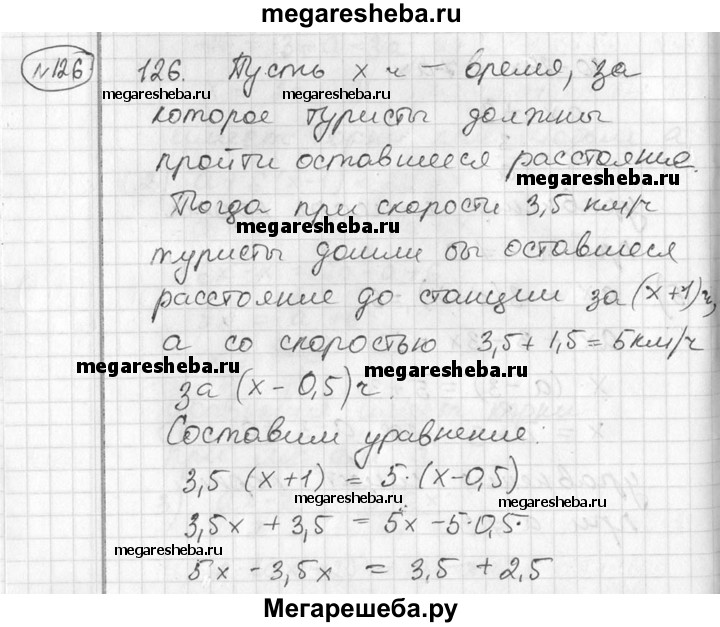 megaresheba.ru
№126
126. Пусть х ч – время, за
megaresheba.ru megaresheba.ru
которое туристы должны
пройти оставшееся расстояние.
megaresheba.ru
Тогда при скорости 3,5 км/ч
megaresheba.ru
туристы дошли бы оставшиеся
расстояние до станции за (х+1)ч,
а со скоростью 3,5+1,5=5км/ч
megaresheba.ru megaresheba.ru
за (х-0,5)ч.
Составим уравнение:
3,5 (х+1) = 5·(х-0,5)
megaresheba.ru megaresheba.ru
3,5х + 3,5 = 5х -5·0,5·
megaresheba.ru
5х - 3,5х = 3,5 + 2,5
Мегарешеба.ру